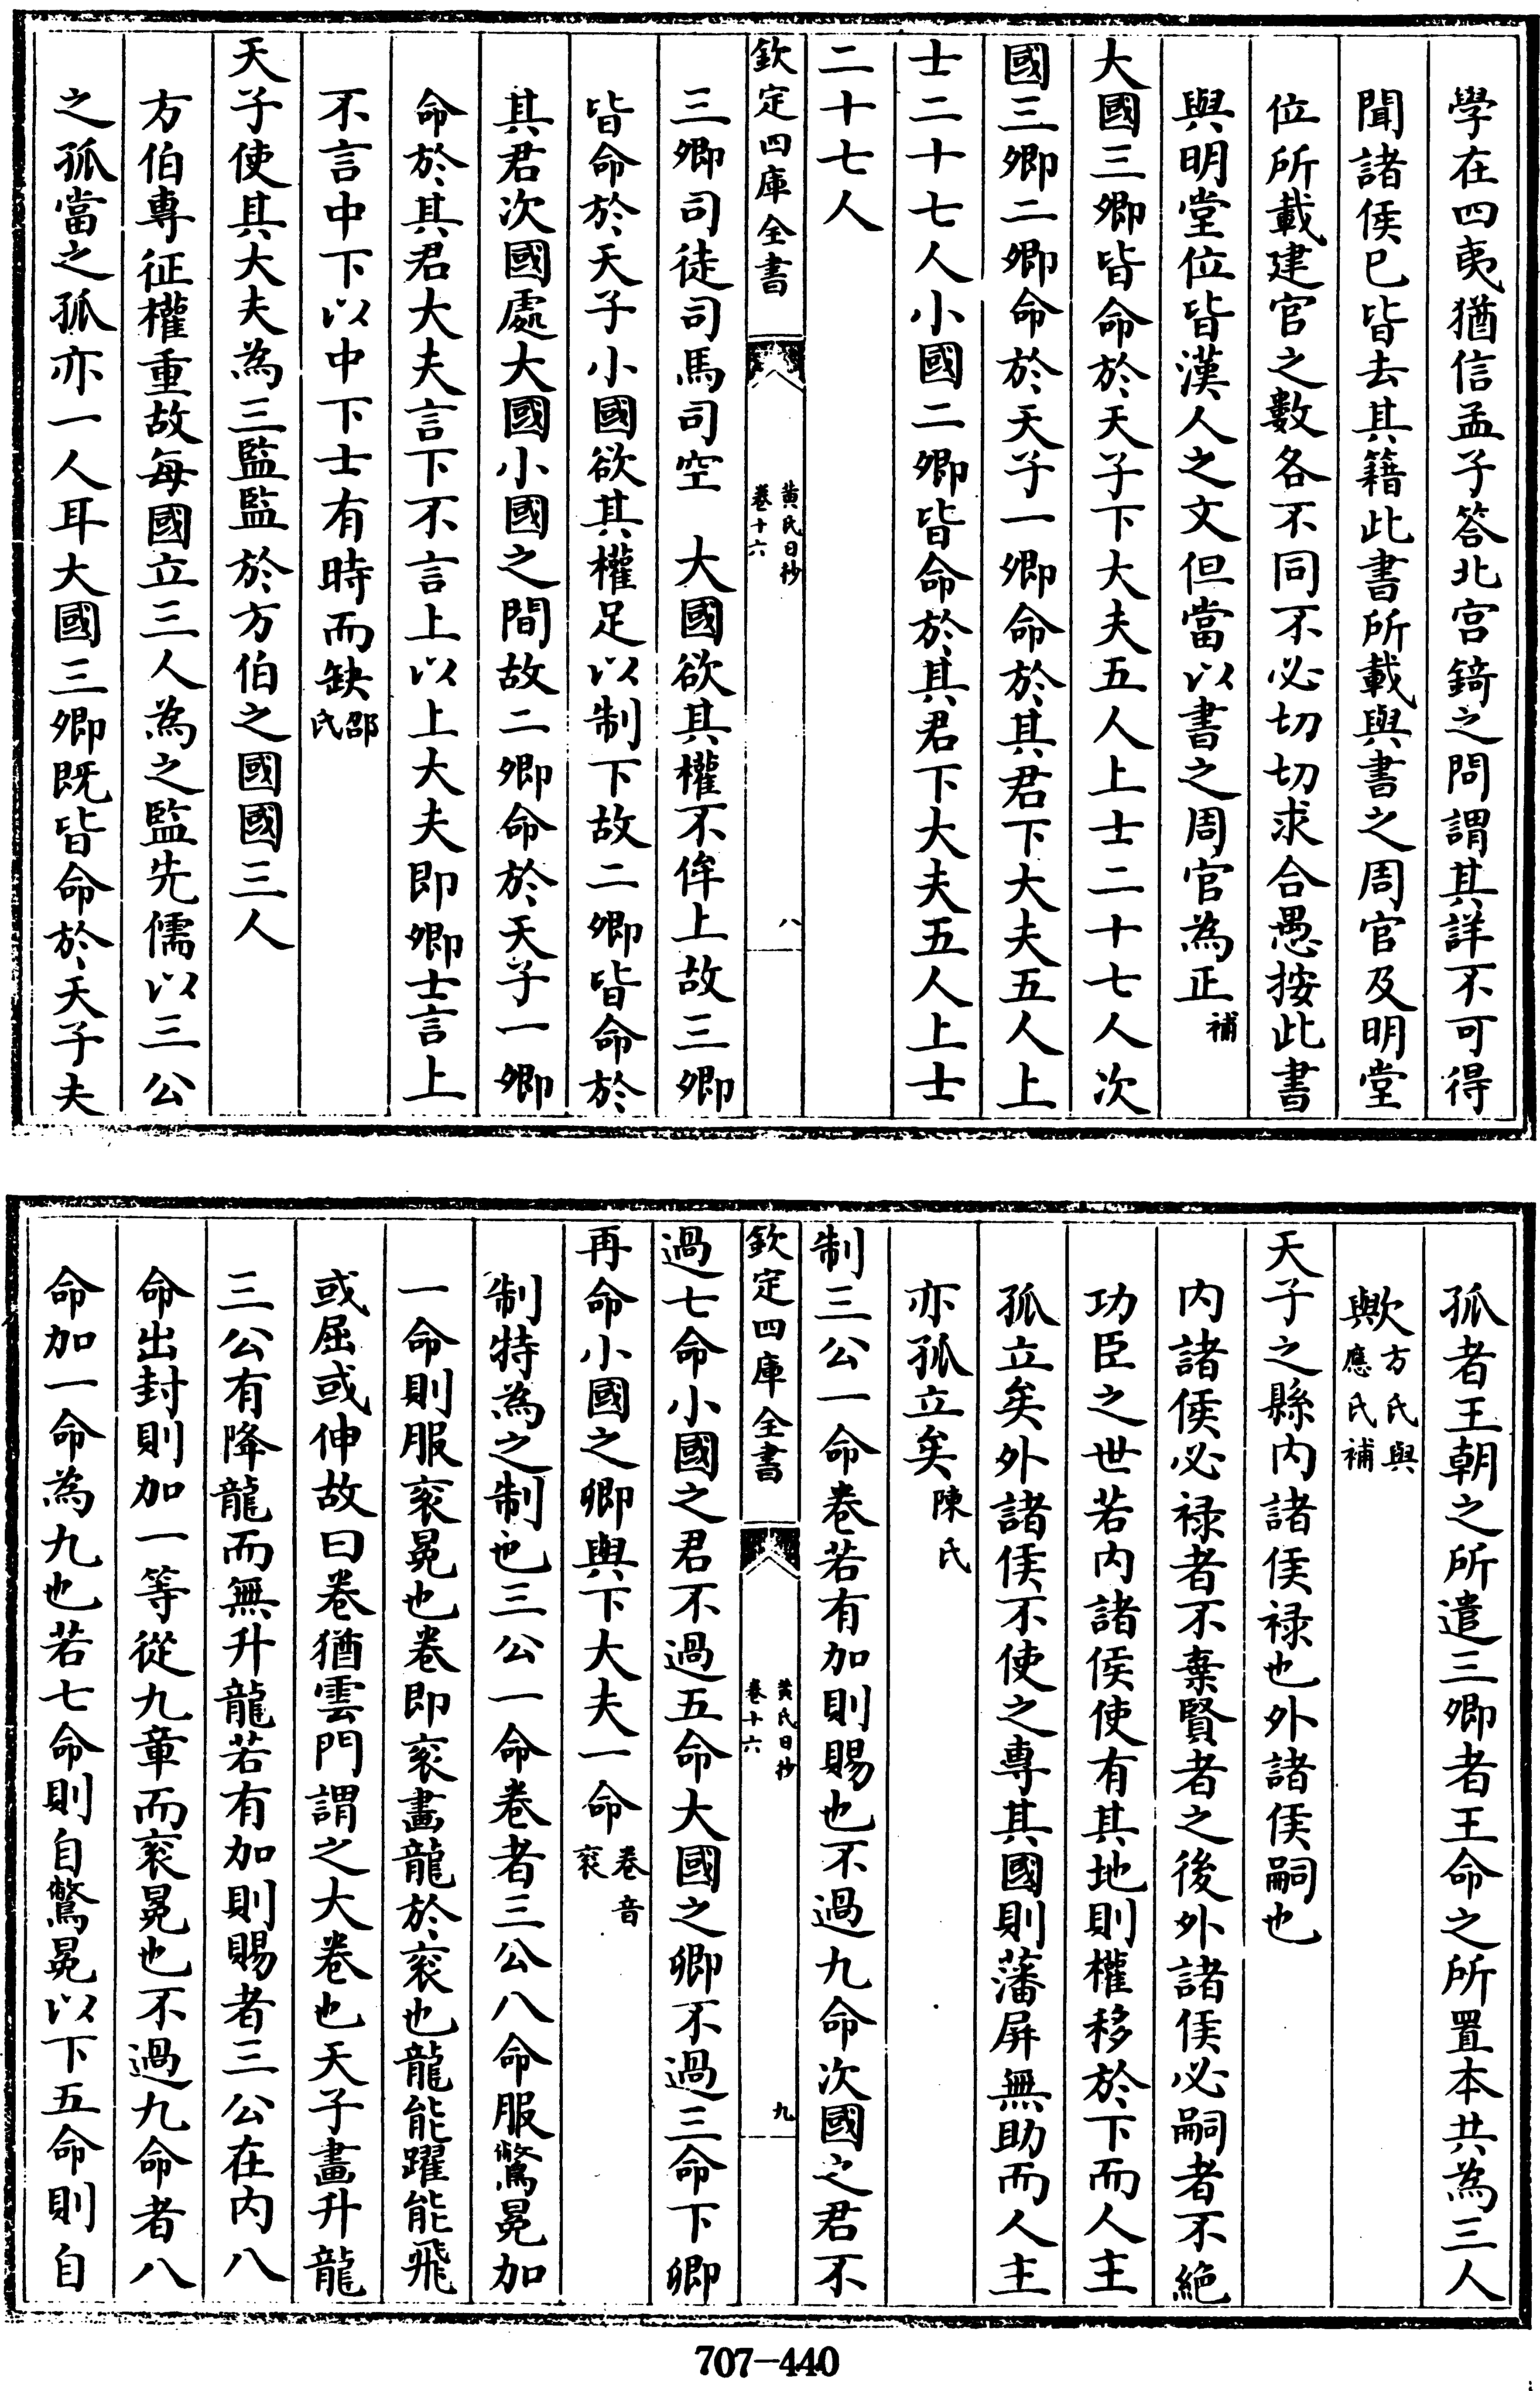 學在四夷猶信孟子答北宮錡之問謂其詳不可得
聞諸侯已皆去其籍此書所載與書之周官及明堂
位所載建官之數各不同不必切切求合愚按此書
與明堂位皆漢人之文但當以書之周官為正補
大國三卿皆命於天子下大夫五人上士二十七人次
國三卿二卿命於天子一卿命於其君下大夫五人上
士二十七人小國二卿皆命於其君下大夫五人上士
二十七人
欽定四庫全書
黃氏日抄
卷十六
八
三卿司徒司馬司空　大國欲其權不侔上故三卿
皆命於天子小國欲其權足以制下故二卿皆命於
其君次國處大國小國之間故二卿命於天子一卿
命於其君大夫言下不言上以上大夫即卿士言上
不言中下以中下士有時而缺邵氏
天子使其大夫為三監監於方伯之國國三人
方伯專征權重故每國立三人為之監先儒以三公
之孤當之孤亦一人耳大國三卿既皆命於天子夫
孤者王朝之所遣三卿者王命之所置本共為三人
歟方氏與應氏補
天子之縣內諸侯祿也外諸侯嗣也
內諸侯必祿者不棄賢者之後外諸侯必嗣者不絕
功臣之世若內諸侯使有其地則權移於下而人主
孤立矣外諸侯不使之專其國則藩屏無助而人主
亦孤立矣陳氏
制三公一命卷若有加則賜也不過九命次國之君不
欽定四庫全書
黃氏日抄
卷十六
九
過七命小國之君不過五命大國之卿不過三命下卿
再命小國之卿與下大夫一命卷音袞
制特為之制也三公一命卷者三公八命服鷩冕加
一命則服袞冕也卷即袞畫龍於袞也龍能躍能飛
或屈或伸故曰卷猶雲門謂之大卷也天子畫升龍
三公有降龍而無升龍若有加則賜者三公在內八
命出封則加一等從九章而袞冕也不過九命者八
命加一命為九也若七命則自鷩冕以下五命則自
707-440